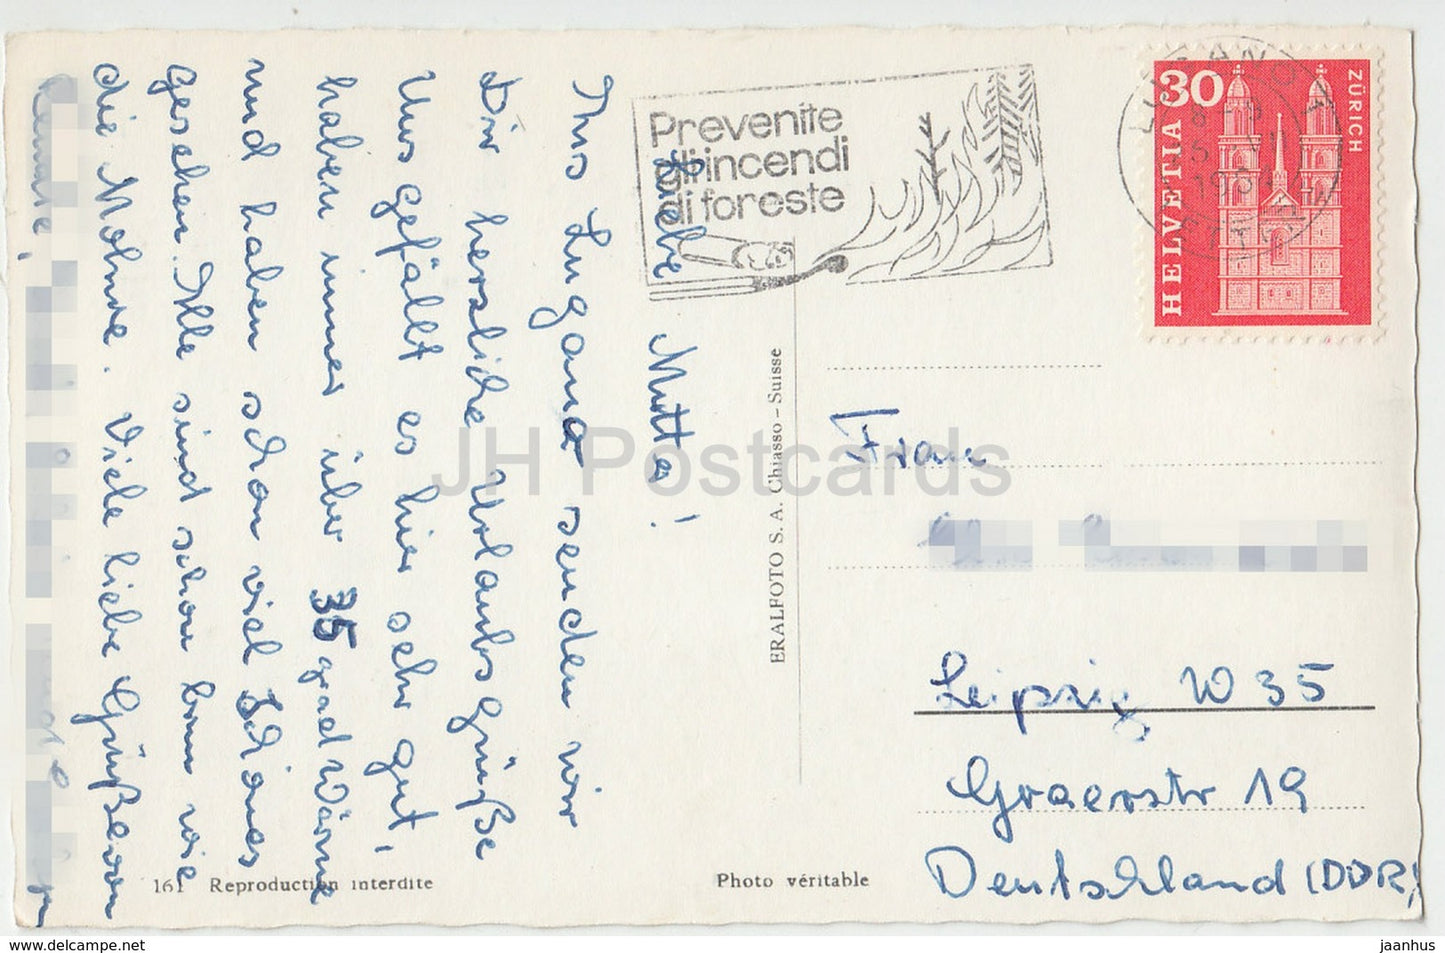 Liebe Mutta!
Aus Lugano senden wir
Dir herzliche Urlaubsgrüße
Uns gefällt es hier sehr gut,
haben immer über 35 grad Wärme
und haben schon viel Schönes
Gesehen. Alle sind schon braun wie
die Mohre. Viele liebe Grüße von
Prevenite
gli incendi
di foreste
LUGANO 1
30
HELVETIA
ZÜRICH
Frau
Leipzig W 35
Graerstr 19
Deutschland (DDR)
ERALFOTO S. A. Chiasso - Suisse
161 Reproduction interdite
Photo véritable
JH Postcards
www.delcampe.net
jaanhus